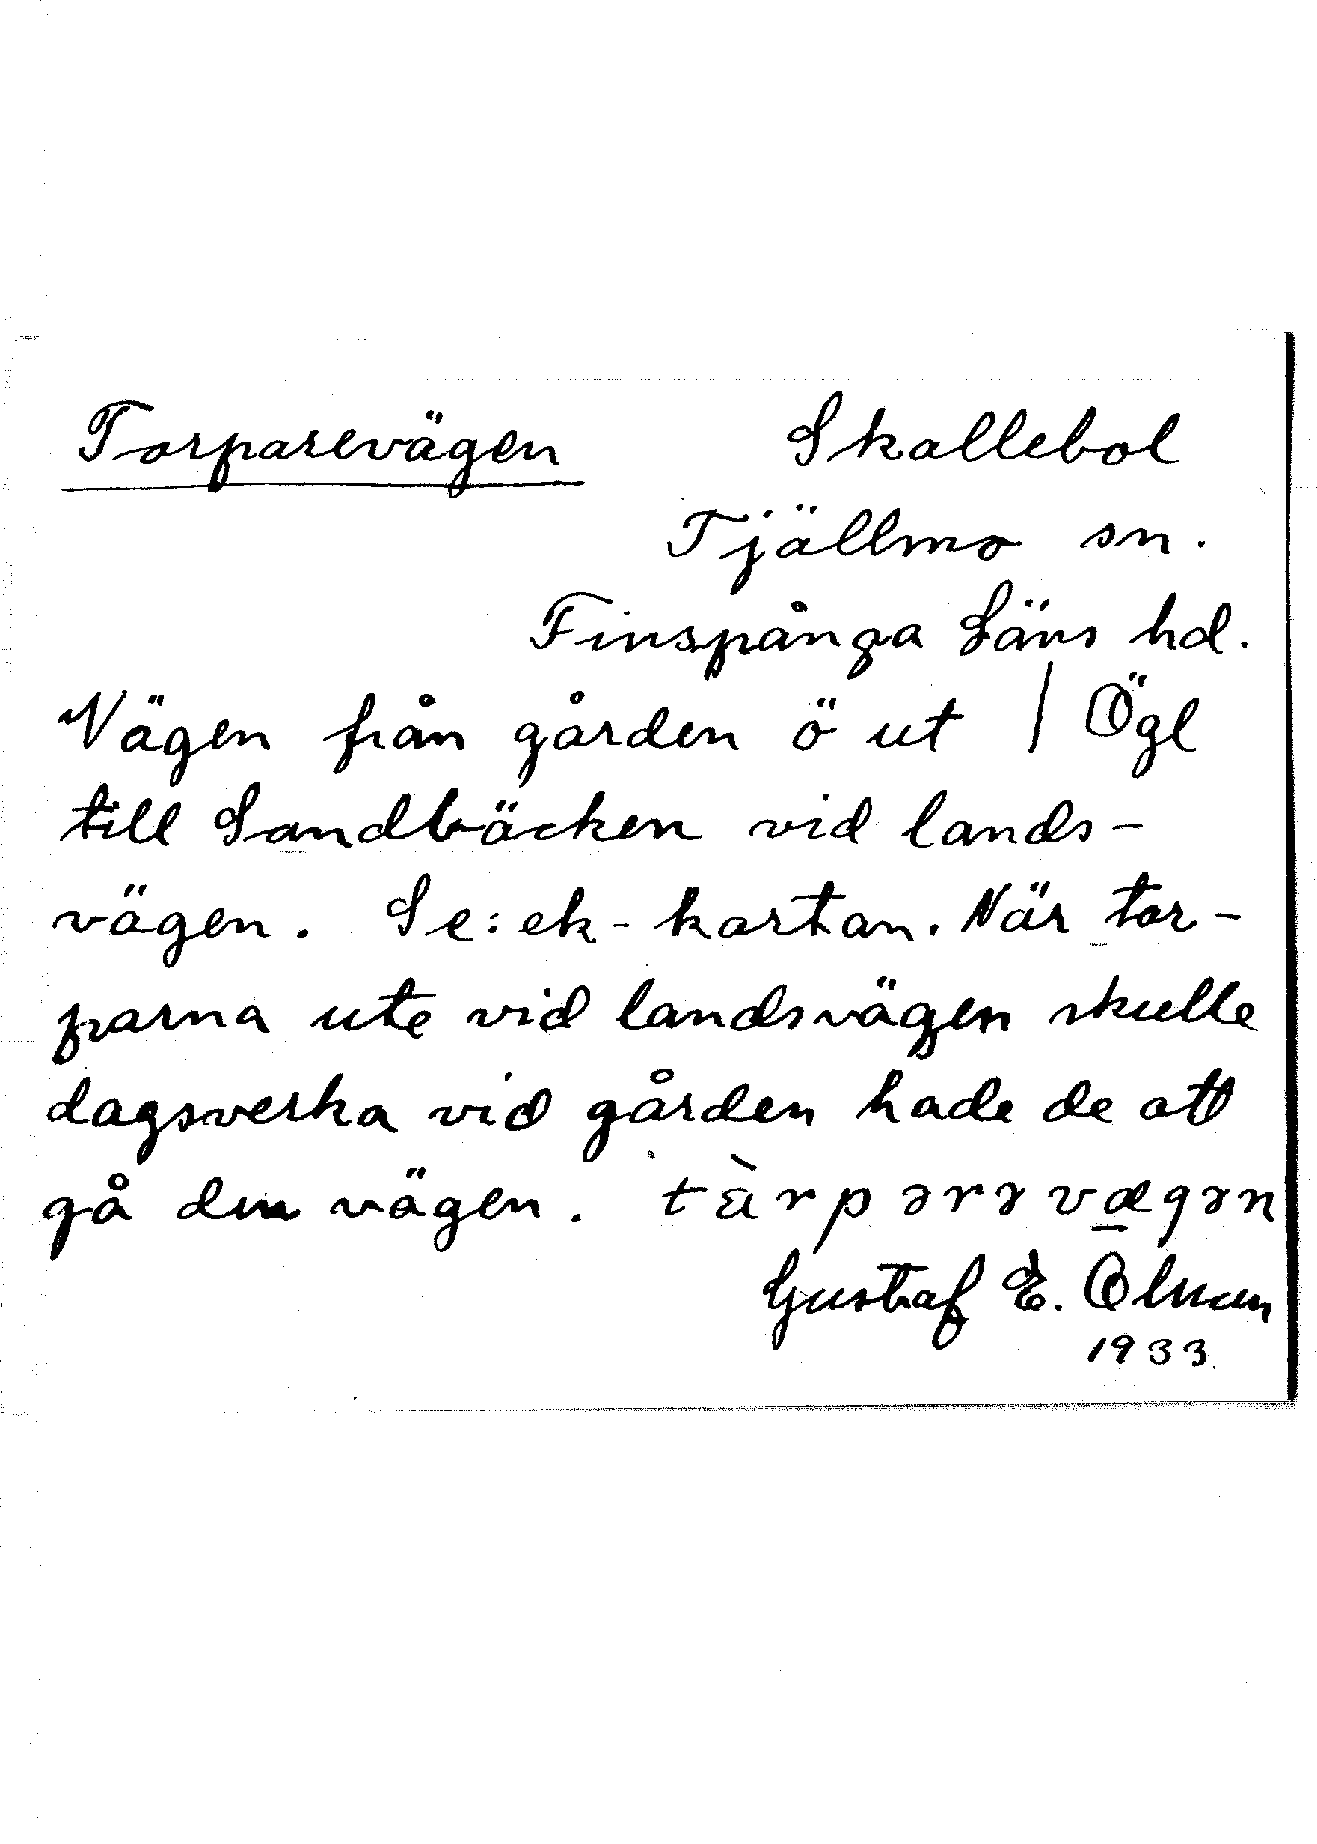 Torparevägen Skallebol
Tjällmo sn.
Finspånga Läns hd.
Vägen från gården ö ut | Ögl
till Sandbäcken vid lands-
vägen. Se: ek-kartan. När tor-
parna ute vid landsvägen skulle
dagsverka vid gården hade de att
gå den vägen. tàrpərəvægən
Gustaf E. Ölman
1933